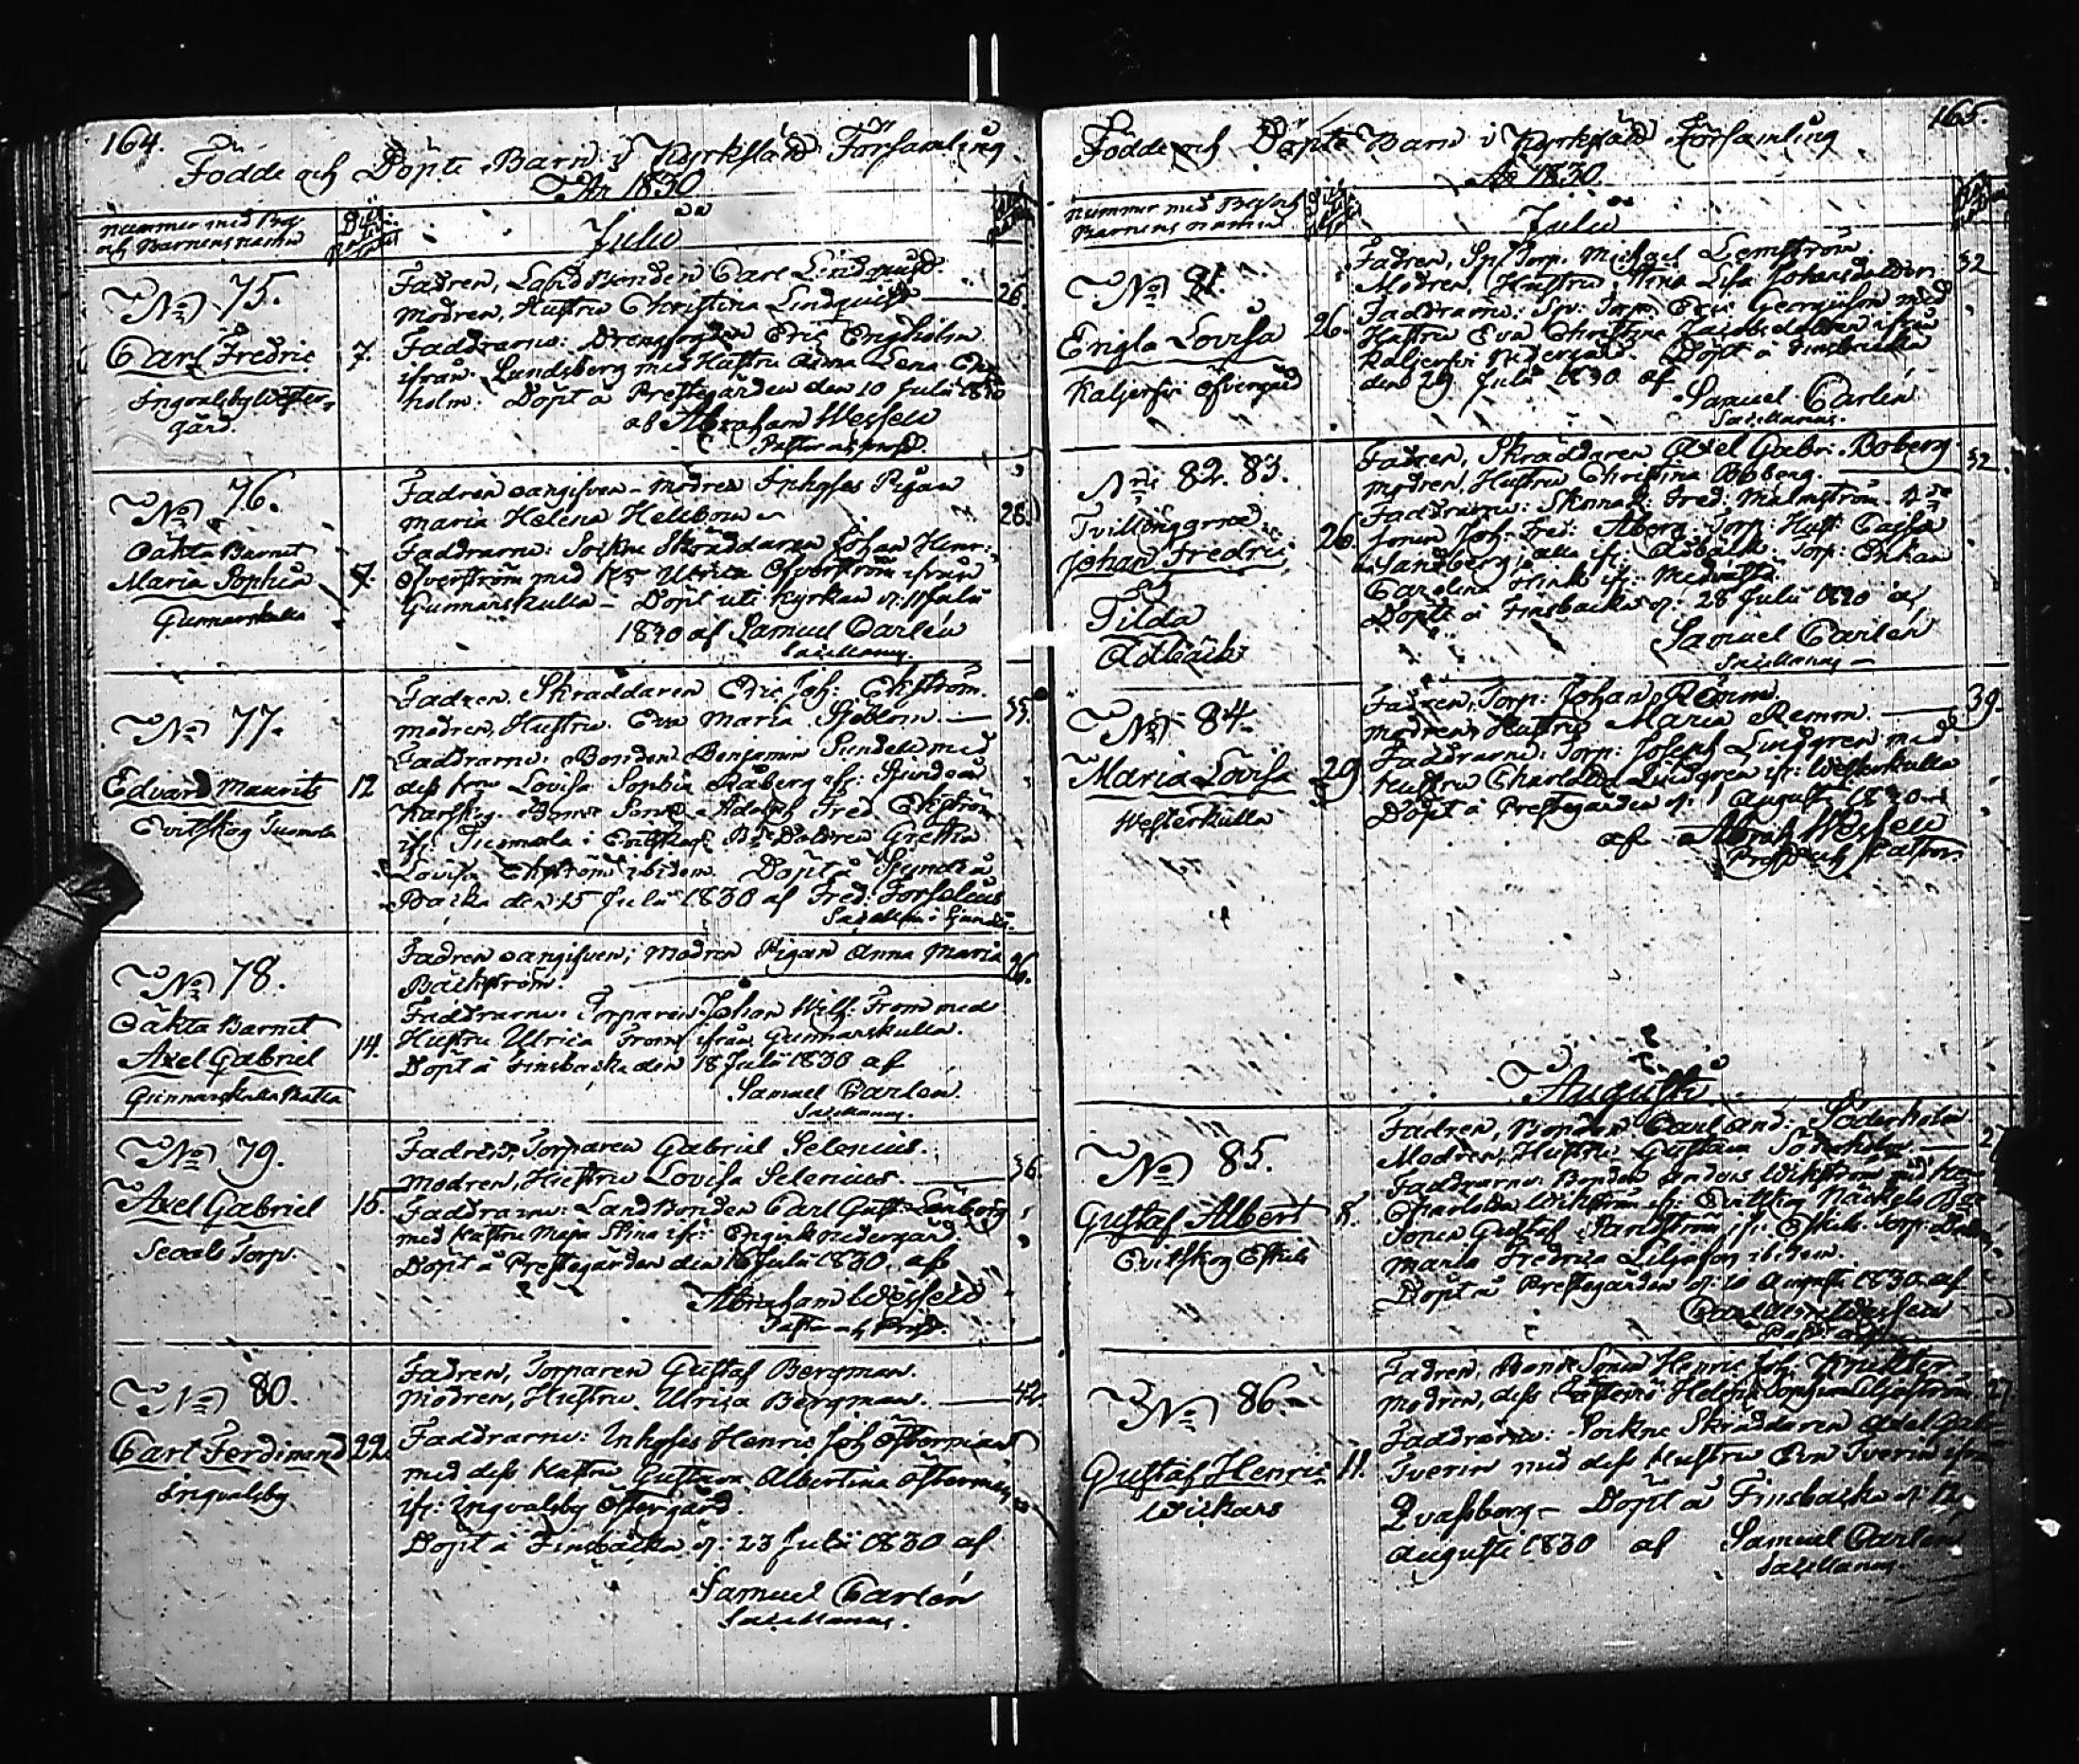 164.
Födde och Döpte Barn i Kyrkslätt Församling
År 1830
Nummer med
och Barnens namn
Julii
No 75.
Carl Fredric
Ingvalsby Wester-
gård.
7.
Fadren, Landbonden Carl Lindquist.
Modren, Hustru Christina Lindquist — 26.
Faddrarne: Drengfogden Eric Engholm
ifrån Lundsberg med Hustru Anna Lena Eng-
holm. Döpt å Prestegården den 10 Julii 1830
af Abraham Wesfeld
Pastor och Prost.
No 76.
Oäkta Barnet
Maria Sophia
Gunnarskulla
7.
Fadren oangifven – Modren Inhyses Pigan
Maria Helena Hellbom 28.
Faddrarne: Sockne Skräddaren Johan Henr:
Öfverström med Ulrica Öfverström ifrån
Gunnarskulla – Döpt uti Kyrkan d: 11 Julii
1830 af Samuel Carlén
Sacellanus.
No 77.
Edvard Maurits
Evitskog Tuomola
12
Fadren, Skräddaren Eric Joh: Ekström.
Modren, Hustru Eva Maria Sjöblom — 35.
Faddrarne: Bonden Benjamin Sundell med
dess fru Lovisa Sophia Råberg if: Sjundeå
Karskog. Bonde Sonen Adolph Fred. Ekström
if: Tuomola i Evitskog Bde Dottren Gretha
Lovisa Ekström ibidem. Döpt å Sjundeå
Backa den 15 Julii 1830 af Fred: Forselius
Sacellan i Sjundeå.
No 78.
Oäkta Barnet
Axel Gabriel
Gunnarskulla Matts
14.
Fadren oangifven; Modren Pigan Anna Maria 26.
Bäckström.
Faddrarne: Torparen Johan Wilh: From med
Hustru Ulrica From ifrån Gunnarskulla.
Döpt å Finsbacka den 18 Julii 1830 af
Samuel Carlén.
Sacellanus.
No 79.
Axel Gabriel
Torp.
15.
Fadren, Torparen Gabriel Selenius.
Modren, Hustru Lovisa Selenius. — 36.
Faddrarne: Landbonden Carl Gust: Lönberg
med Hustru Maja Stina if: Engisk nedergård.
Döpt å Prestegården den 16 Julii 1830. af
Abraham Wesfeld
Pastor och Prost.
No 80.
Carl Ferdinand
Ingvalsby
22.
Fadren, Torparen Gustaf Bergman.
Modren, Hustru Ulrica Bergman. — 42.
Faddrarne: Inhyses Henric Joh Österman
med dess Hustru Gustava Albertina Österman
if: Ingvalsby Östergård.
Döpt å Finsbacka d: 23 Julii 1830 af
Samuel Carlén
Sacellanus.
165.
Födde och Döpte Barn i Kyrkslätt Församling
År 1830.
Nummer med
Barnens namn
Julii
No 81.
Engla Lovisa
Kaljerfvi Öfvergård
26.
Fadren, Sp: Torp. Michael Lemström.
Modren, Hustru Stina Lisa Johansdotter 32
Faddrarne: Sp: Torp: Eric Georgsson med
Hustru Eva Christina Jacobsdotter ifrån
Kaljerfvi Nedergård. Döpt å Finsbacka
den 29 Julii 1830 af
Samuel Carlén
Sacellanus.
Nris 82. 83.
Tvillingarne
Johan Fredric
Tilda
26.
Fadren, Skräddaren Axel Gabr: Boberg
Modren, Hustru Christina Boberg. — 32.
Faddrarne: Fred: Malmström.
Sonen Joh: Fred: Åberg. Torp: Hust: Cajsa
Sandberg, alla if: Torp: Enkan
Carolina if:
Döpte å Finsbacka d: 28 Julii 1830 af
Samuel Carlén
Sacellanus –
No 84.
Maria Lovisa
Westerkulla
29.
Fadren, Torp: Johan Remm.
Modren, Hustru Maria Remm. — 39.
Faddrarne: Torp: Joseph Lindgren med
Hustru Charlotta Lindgren if: Westerkulla
Döpt å Prestegården d: 1 Augusti 1830
af Abrah: Wesfeld
Prost och Pastor.
Augusti
No 85.
Gustaf Albert
Evitskog Eskils
8.
Fadren, Bonden Carl And: Söderholm
Modren, Hustru Gustava Söderholm — 2
Faddrarne: Bonden Anders Wikström med
Charlotta Wikström if: Evitskog
Sonen Gustaf Sandström if: Eskils. Torp:
Maria Fredrica Liljefors ibidem.
Döpt å Prestegården d: 10 Augusti 1830. af
Wesfeld
No 86.
Gustaf Henric
Wickars
11.
Fadren, Bonde Sonen Henric Joh:
Modren, dess Helena Liljeström 27
Faddrarne: Sockne Skräddaren Axel Gab:
Tverin med dess Hustru Eva Tverin ifrån
Qvafsborg – Döpt å Finsbacka d: 12
Augusti 1830 af Samuel Carlén
Sacellanus.